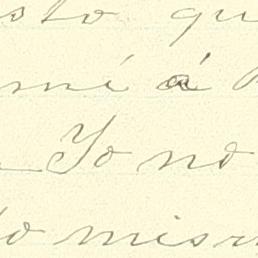 sto qu
mí á
Yo no
lo mism